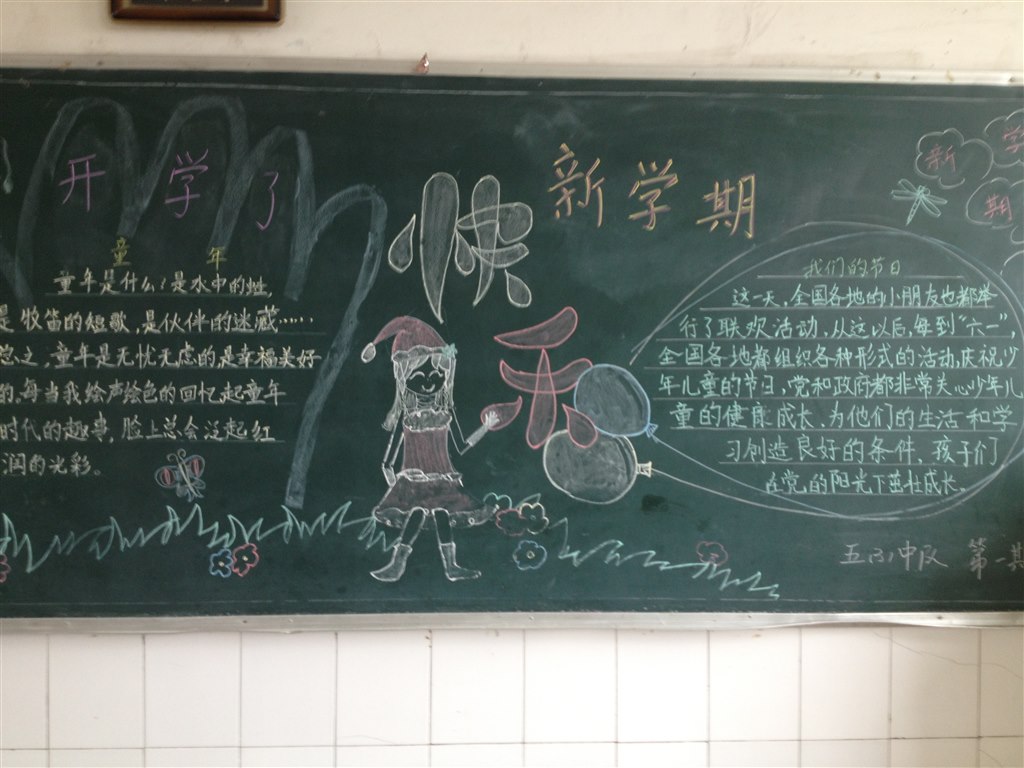 开学了
童年
童年是什么?是水中的蛙,
是牧笛的短歌,是伙伴的迷藏……
总之,童年是无忧无虑的,是幸福美好
的,每当我绘声绘色的回忆起童年
时代的趣事,脸上总会泛起红
润的光彩。
快乐
新学期
我们的节日
这一天,全国各地的小朋友也都举
行了联欢活动,从这以后,每到“六一”,
全国各地都组织各种形式的活动,庆祝少
年儿童的节日,党和政府都非常关心少年儿
童的健康成长、为他们的生活和学
习创造良好的条件,孩子们
在党的阳光下茁壮成长。
新学
期
五(3)中队 第一期